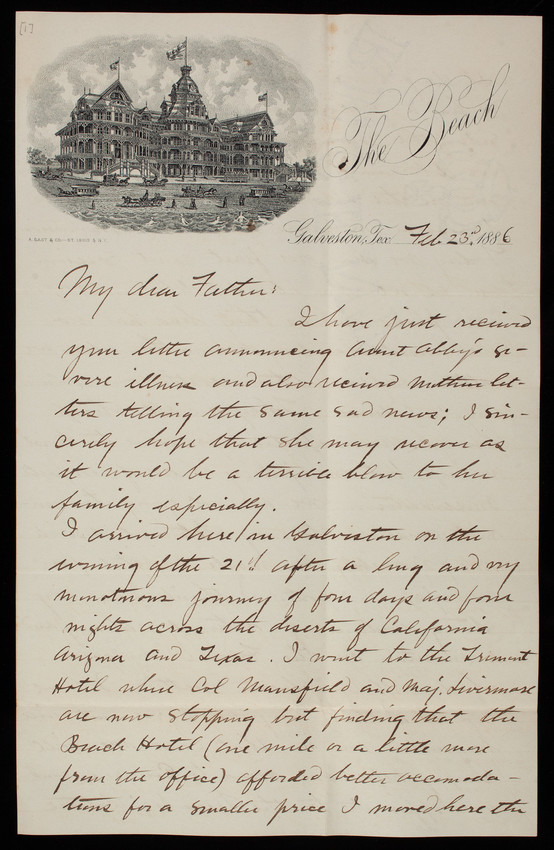 [1]
The Beach
Galveston, Tex. Feb 23rd, 1886
My dear Father:
I have just recieved
your letter announcing Aunt Abby's se-
vere illness and also recieved mothers let-
ters telling the same sad news; I sin-
cerely hope that she may recover as
it would be a terrible blow to her
family especially.
I arrived here in Galveston on the
evening of the 21st after a long and very
monotonous journey of four days and four
nights across the deserts of California
Arizona and Texas. I went to the Tremont
Hotel where Col Mansfield and Maj. Livermore
are now stopping but finding that the
Beach Hotel (one mile or a little more
from the office) afforded better accomoda-
tions for a smaller price I moved here the